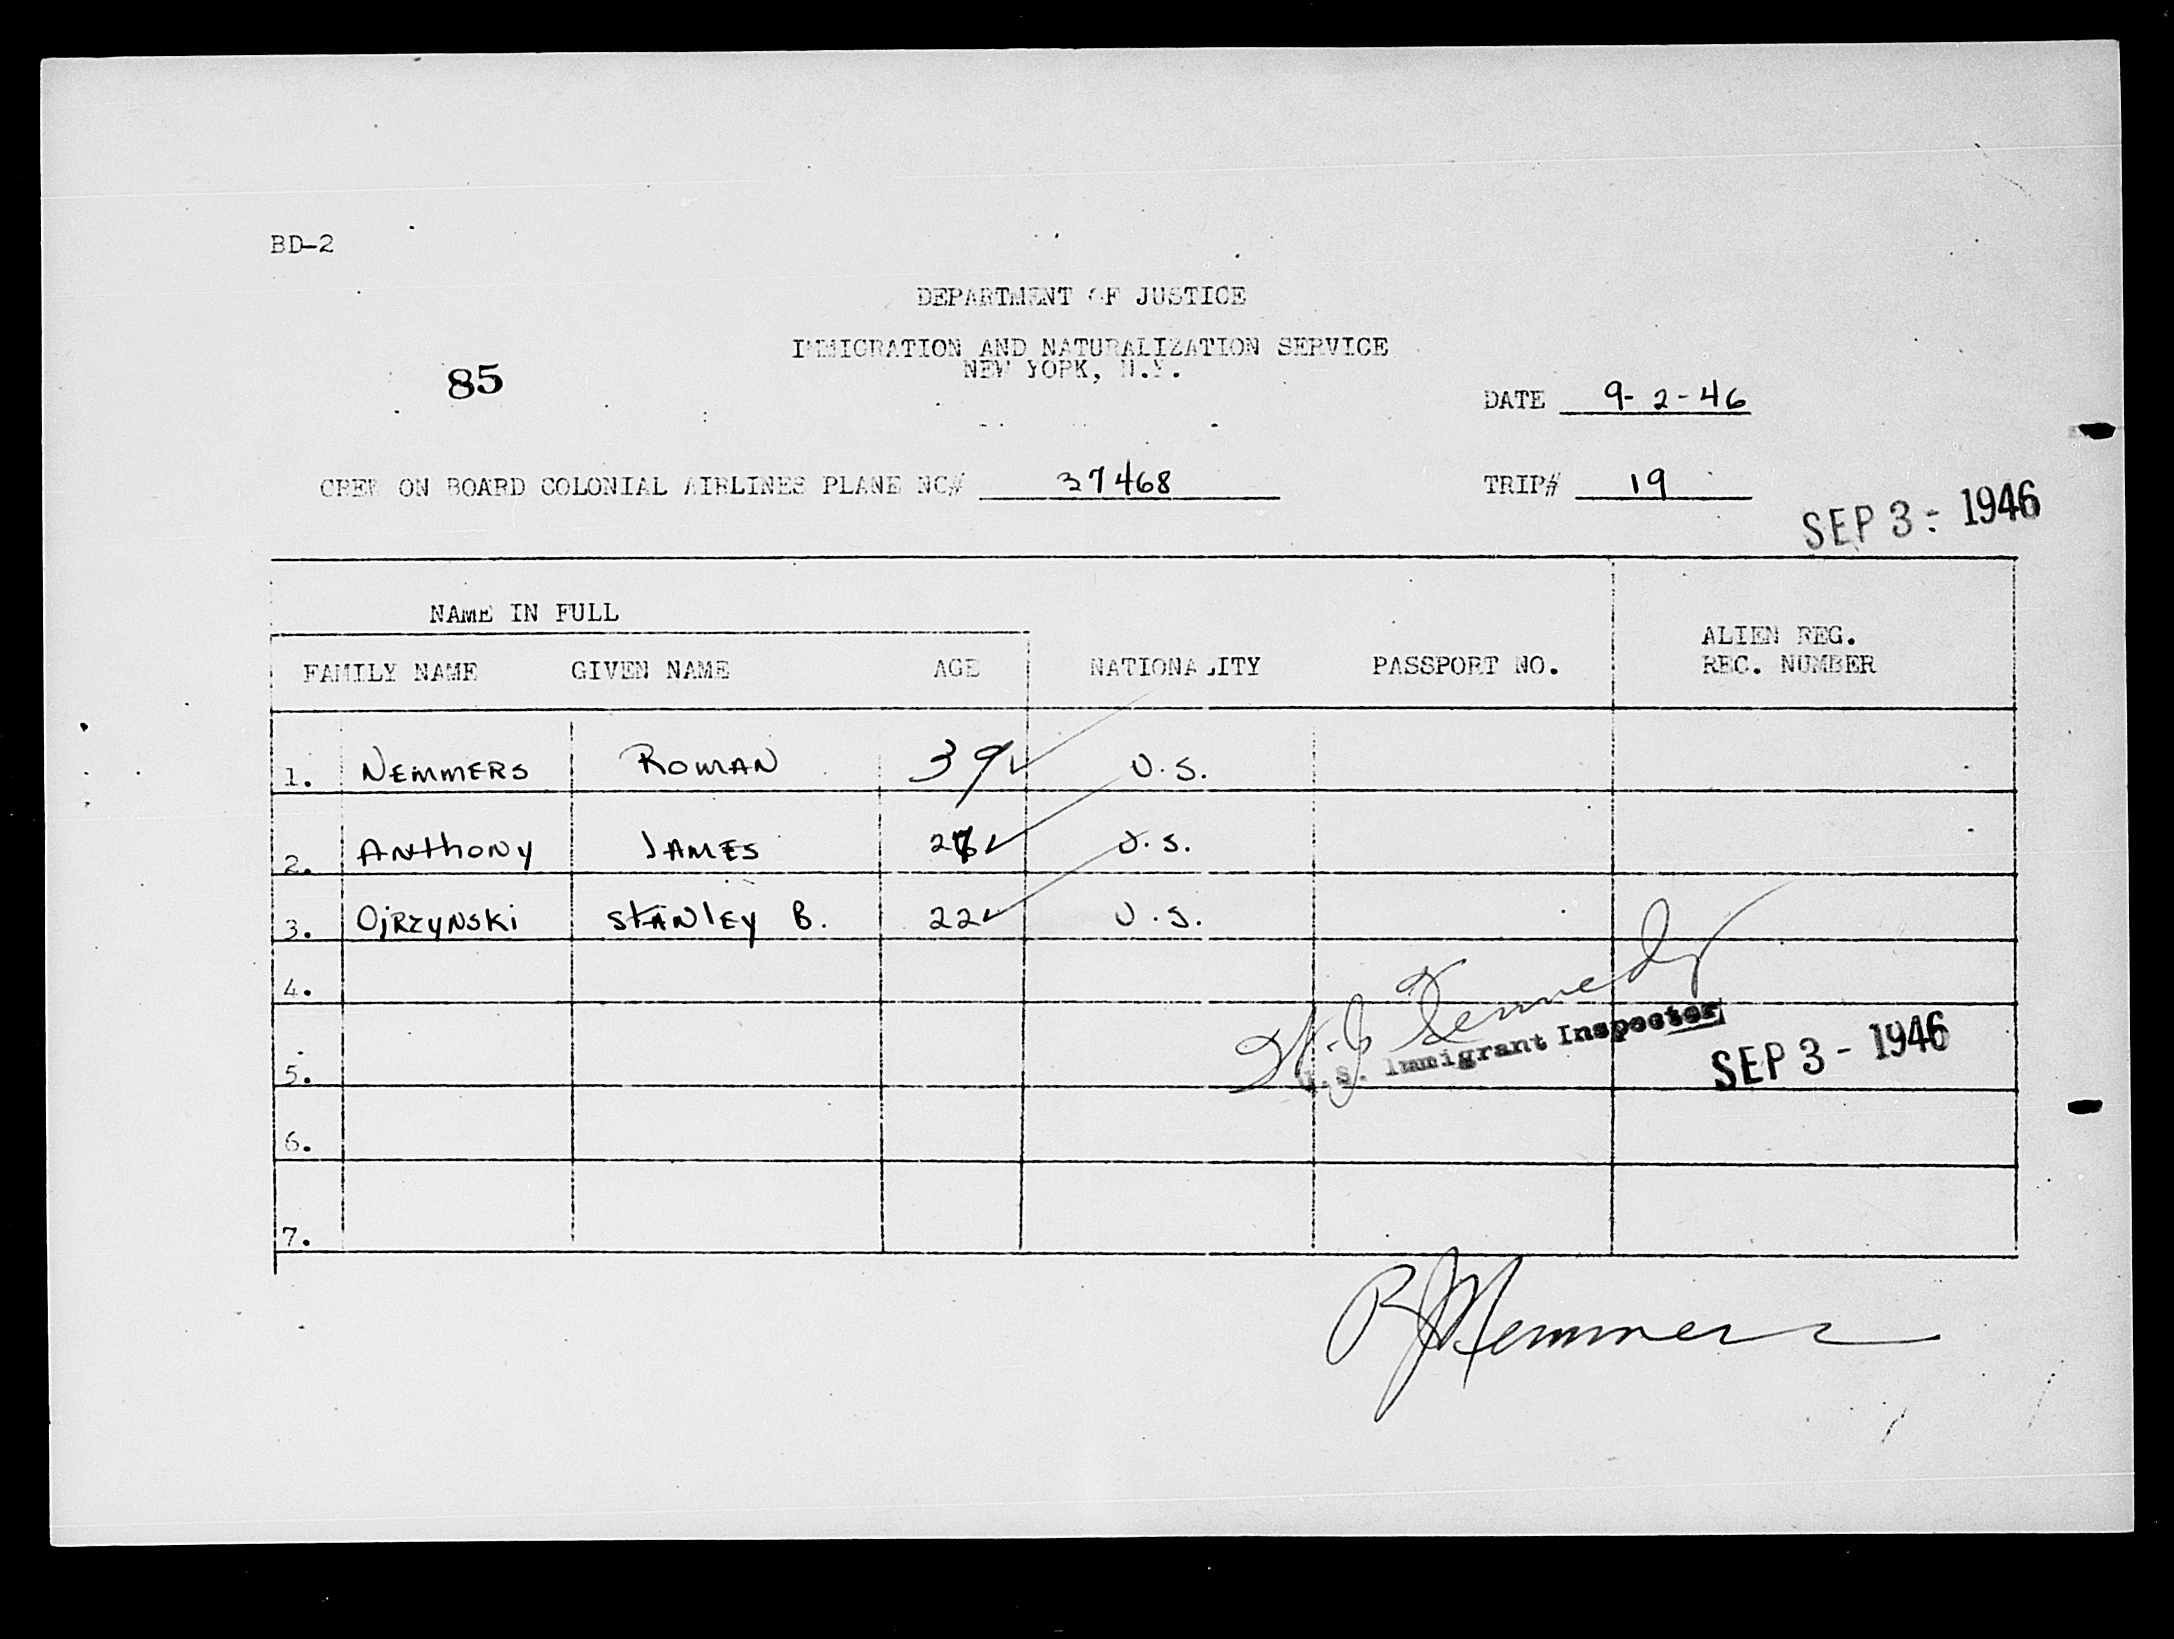 BD-2
DEPARTMENT OF JUSTICE
IMMIGRATION AND NATURALIZATION SERVICE
NEW YORK, N.Y.
85
DATE 9-2-46
CREW ON BOARD COLONIAL AIRLINES PLANE NC# 37468 TRIP# 19
SEP 3 - 1946
NAME IN FULL
FAMILY NAME GIVEN NAME AGE NATIONALITY PASSPORT NO. ALIEN REG. REC. NUMBER
1. NEMMERS ROMAN 39 U.S.
2. ANTHONY JAMES U.S.
3. OJRZYNSKI STANLEY B. 22 U.S.
4.
Kennedy
U.S. Immigrant Inspector
SEP 3 - 1946
5.
6.
7.
RJ Nemmers